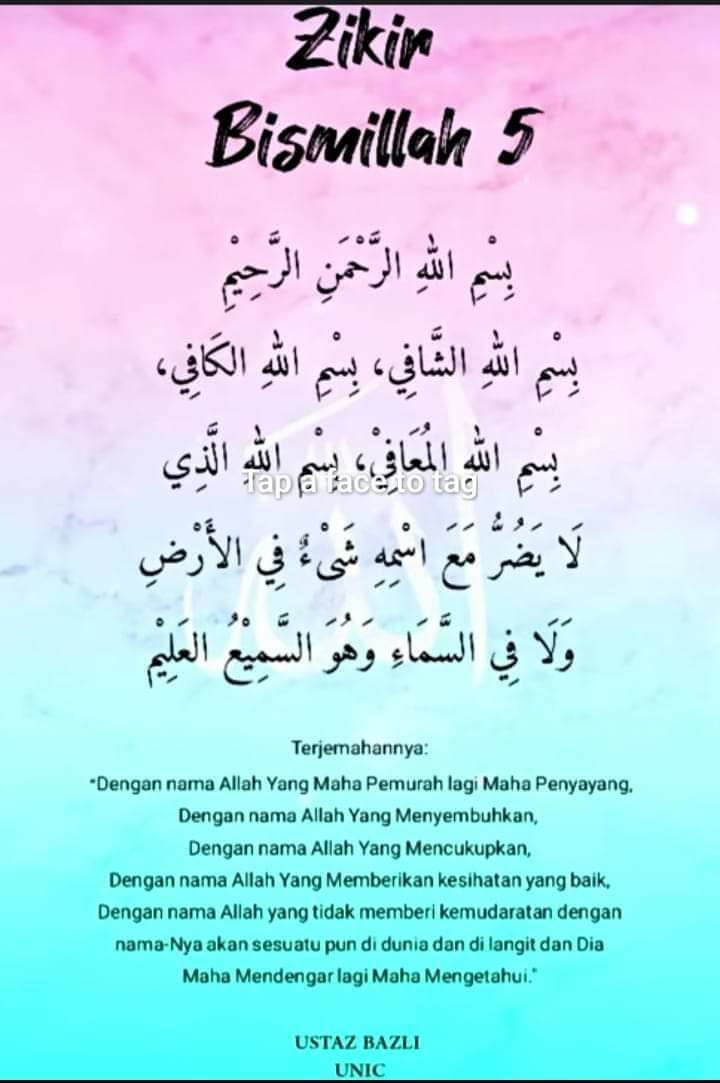 Zikir
Bismillah 5
بِسْمِ اللهِ الرَّحْمَنِ الرَّحِيْمِ
بِسْمِ اللهِ الشَّافِي، بِسْمِ اللهِ الكَافِي،
بِسْمِ اللهِ المُعَافِيْ، بِسْمِ اللهِ الَّذِي
Tap a face to tag
لَا يَضُرُّ مَعَ اسْمِهِ شَىْءٌ فِي الأَرْضِ
وَلَا فِي السَّمَاءِ وَهُوَ السَّمِيْعُ العَلِيْمِ
Terjemahannya:
"Dengan nama Allah Yang Maha Pemurah lagi Maha Penyayang,
Dengan nama Allah Yang Menyembuhkan,
Dengan nama Allah Yang Mencukupkan,
Dengan nama Allah Yang Memberikan kesihatan yang baik,
Dengan nama Allah yang tidak memberi kemudaratan dengan
nama-Nya akan sesuatu pun di dunia dan di langit dan Dia
Maha Mendengar lagi Maha Mengetahui."
USTAZ BAZLI
UNIC
الله